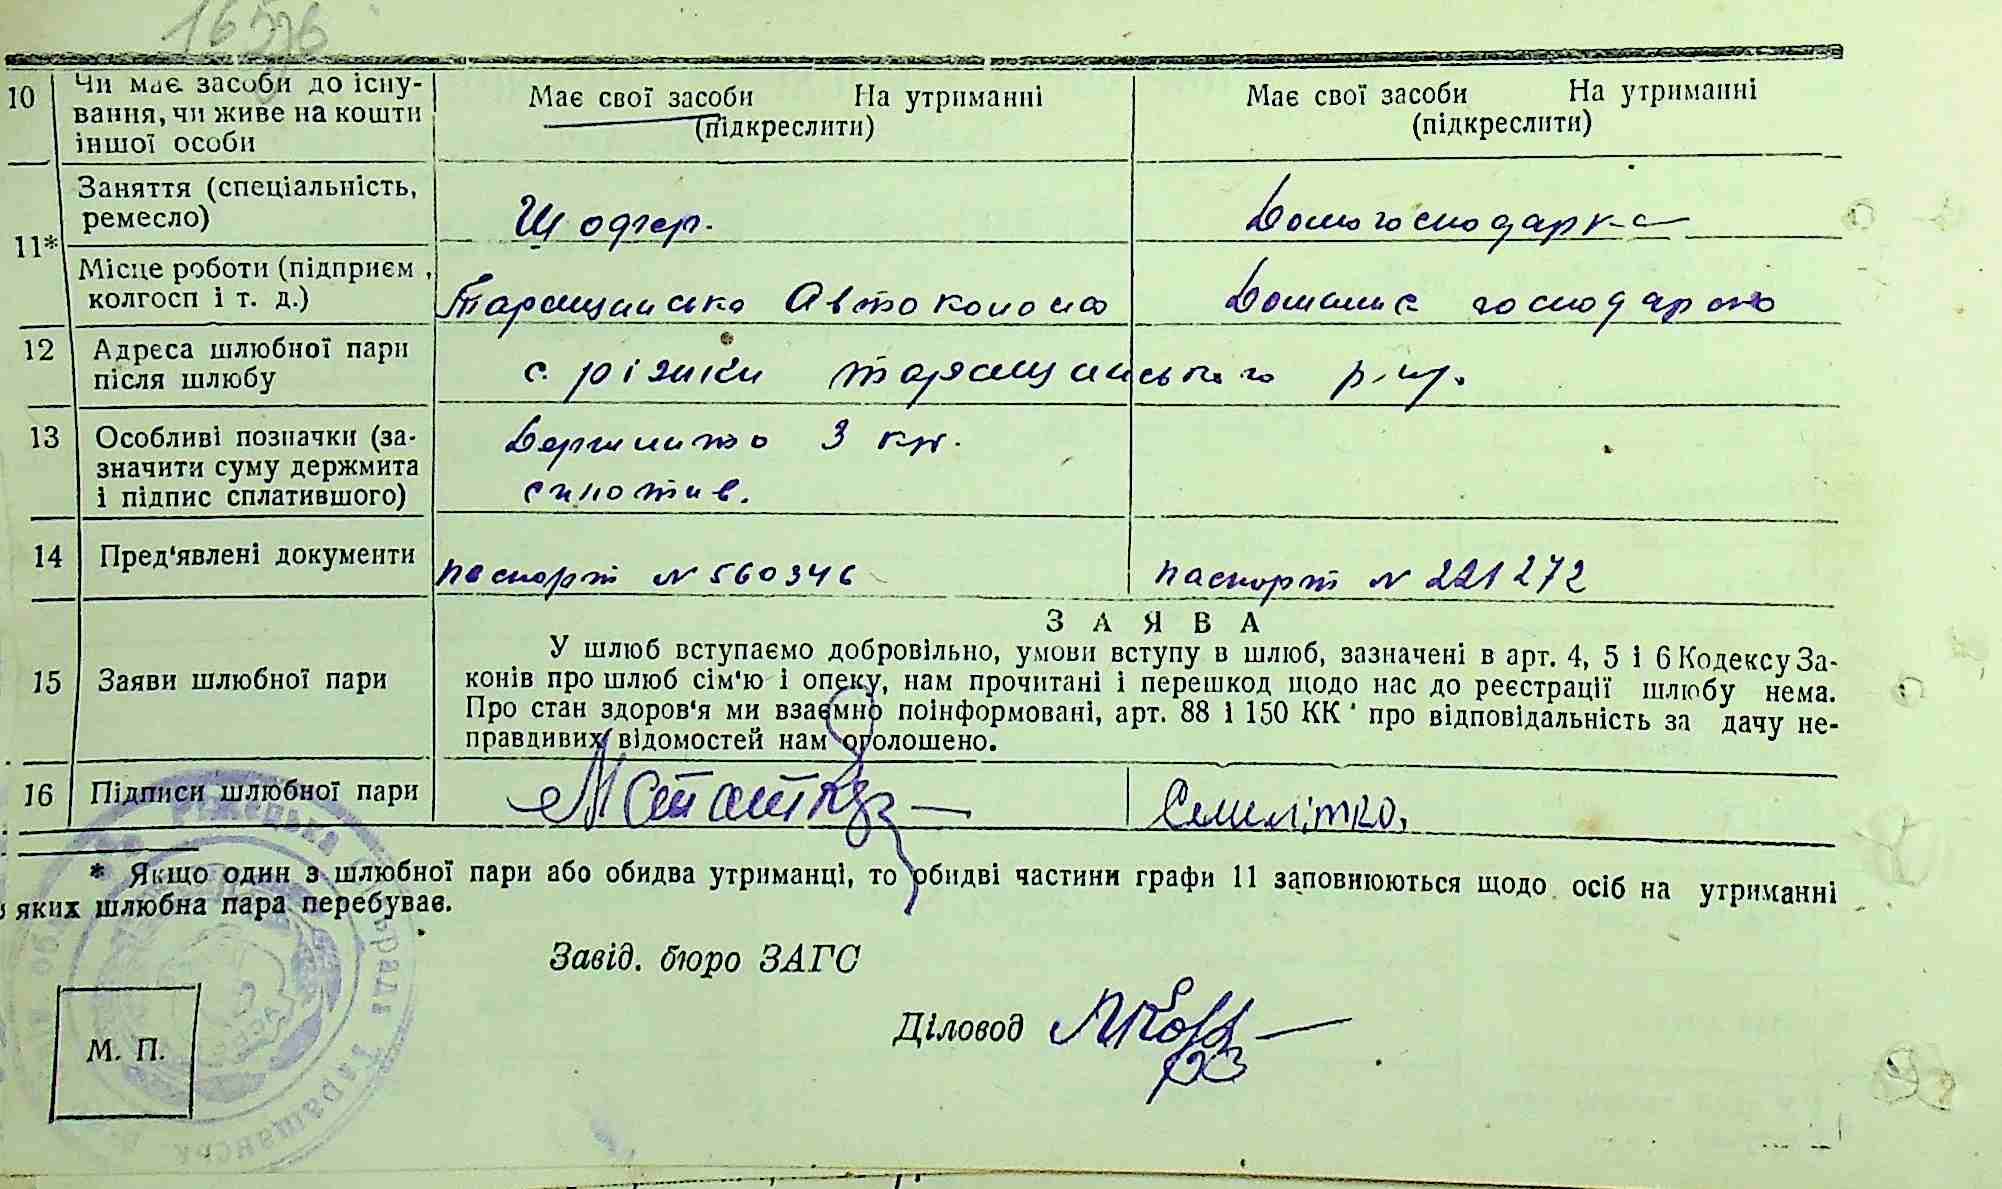 16526
10 Чи має засоби до існу-
вання, чи живе на кошти
іншої особи
Має свої засоби На утриманні
(підкреслити)
Має свої засоби На утриманні
(підкреслити)
11* Заняття (спеціальність,
ремесло)
Шофер.
Домогосподарка
Місце роботи (підприєм.,
колгосп і т. д.)
Таращанська Автоколона
Домашнє господарство
12 Адреса шлюбної пари
після шлюбу
с. Ріжки Таращанського р-ну.
13 Особливі позначки (за-
значити суму держмита
і підпис сплатившого)
Держмито 3 крб.
сплатив.
14 Пред'явлені документи
паспорт № 560346
паспорт № 221272
ЗАЯВА
15 Заяви шлюбної пари
У шлюб вступаємо добровільно, умови вступу в шлюб, зазначені в арт. 4, 5 і 6 Кодексу За-
конів про шлюб сім'ю і опеку, нам прочитані і перешкод щодо нас до реєстрації шлюбу нема.
Про стан здоров'я ми взаємно поінформовані, арт. 88 і 150 КК про відповідальність за дачу не-
правдивих відомостей нам оголошено.
16 Підписи шлюбної пари
Семилітко.
* Якщо один з шлюбної пари або обидва утриманці, то обидві частини графи 11 заповнюються щодо осіб на утриманні
яких шлюбна пара перебуває.
Завід. бюро ЗАГС
Діловод
М. П.